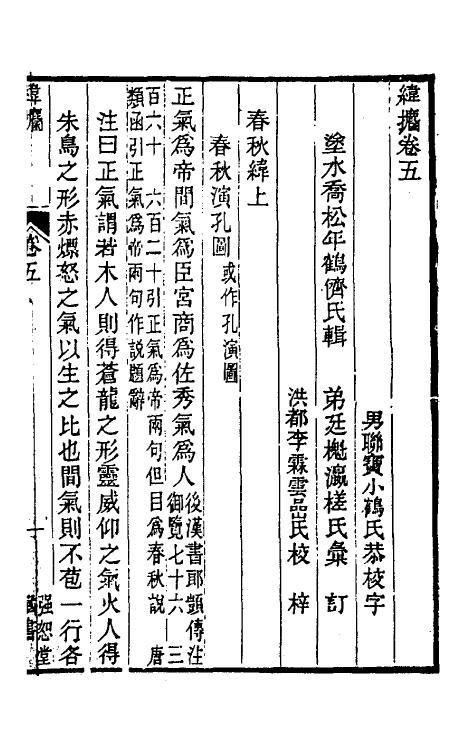 緯攟卷五
男聯寶小鶴氏恭校字
塗水喬松年鶴儕氏輯　弟廷櫆瀛槎氏彙訂
洪都李霖雲嵒氏校梓
春秋緯上
春秋演孔圖 或作孔演圖
正氣爲帝間氣爲臣宮商爲佐秀氣爲人 後漢書郎顗傳注 御覽七十六 三
百六十 六百二十引正氣爲帝兩句但目爲春秋說 唐
類函引正氣爲帝兩句作說題辭
注曰正氣謂若木人則得蒼龍之形靈威仰之氣火人得
朱鳥之形赤熛怒之氣以生之比也間氣則不苞一行各
緯攟 卷五 一 强恕堂